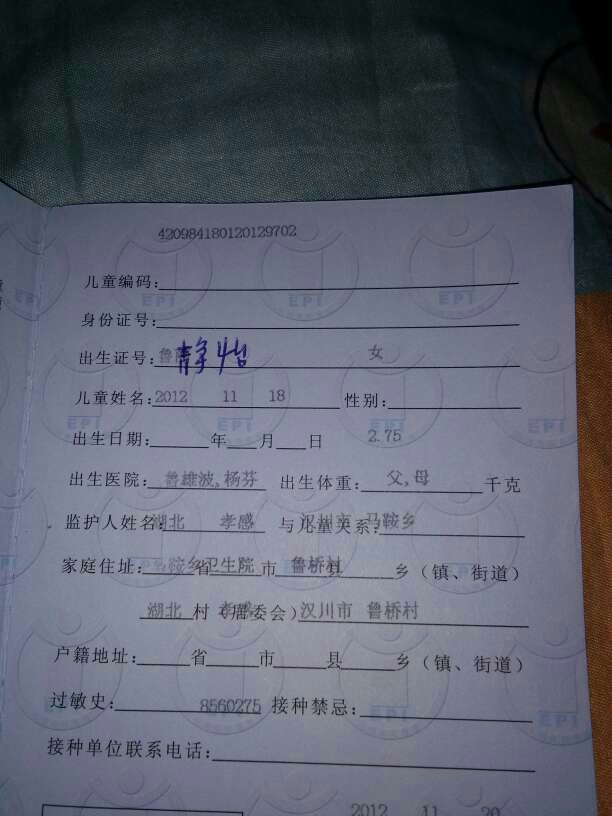 420984180120129702
儿童编码:
身份证号:
出生证号: 鲁 静怡 女
儿童姓名: 2012 11 18 性别:
出生日期: 年 月 日 2.75
出生医院: 鲁雄波,杨芬 出生体重: 父,母 千克
监护人姓名: 湖北 孝感 与儿童关系: 汉川市 马鞍乡
家庭住址: 马鞍乡卫生院 省 市 鲁桥村 县 乡（镇、街道）
湖北 村（居委会） 孝感 汉川市 鲁桥村
户籍地址: 省 市 县 乡（镇、街道）
过敏史: 8560275 接种禁忌:
接种单位联系电话:
2012 11 20